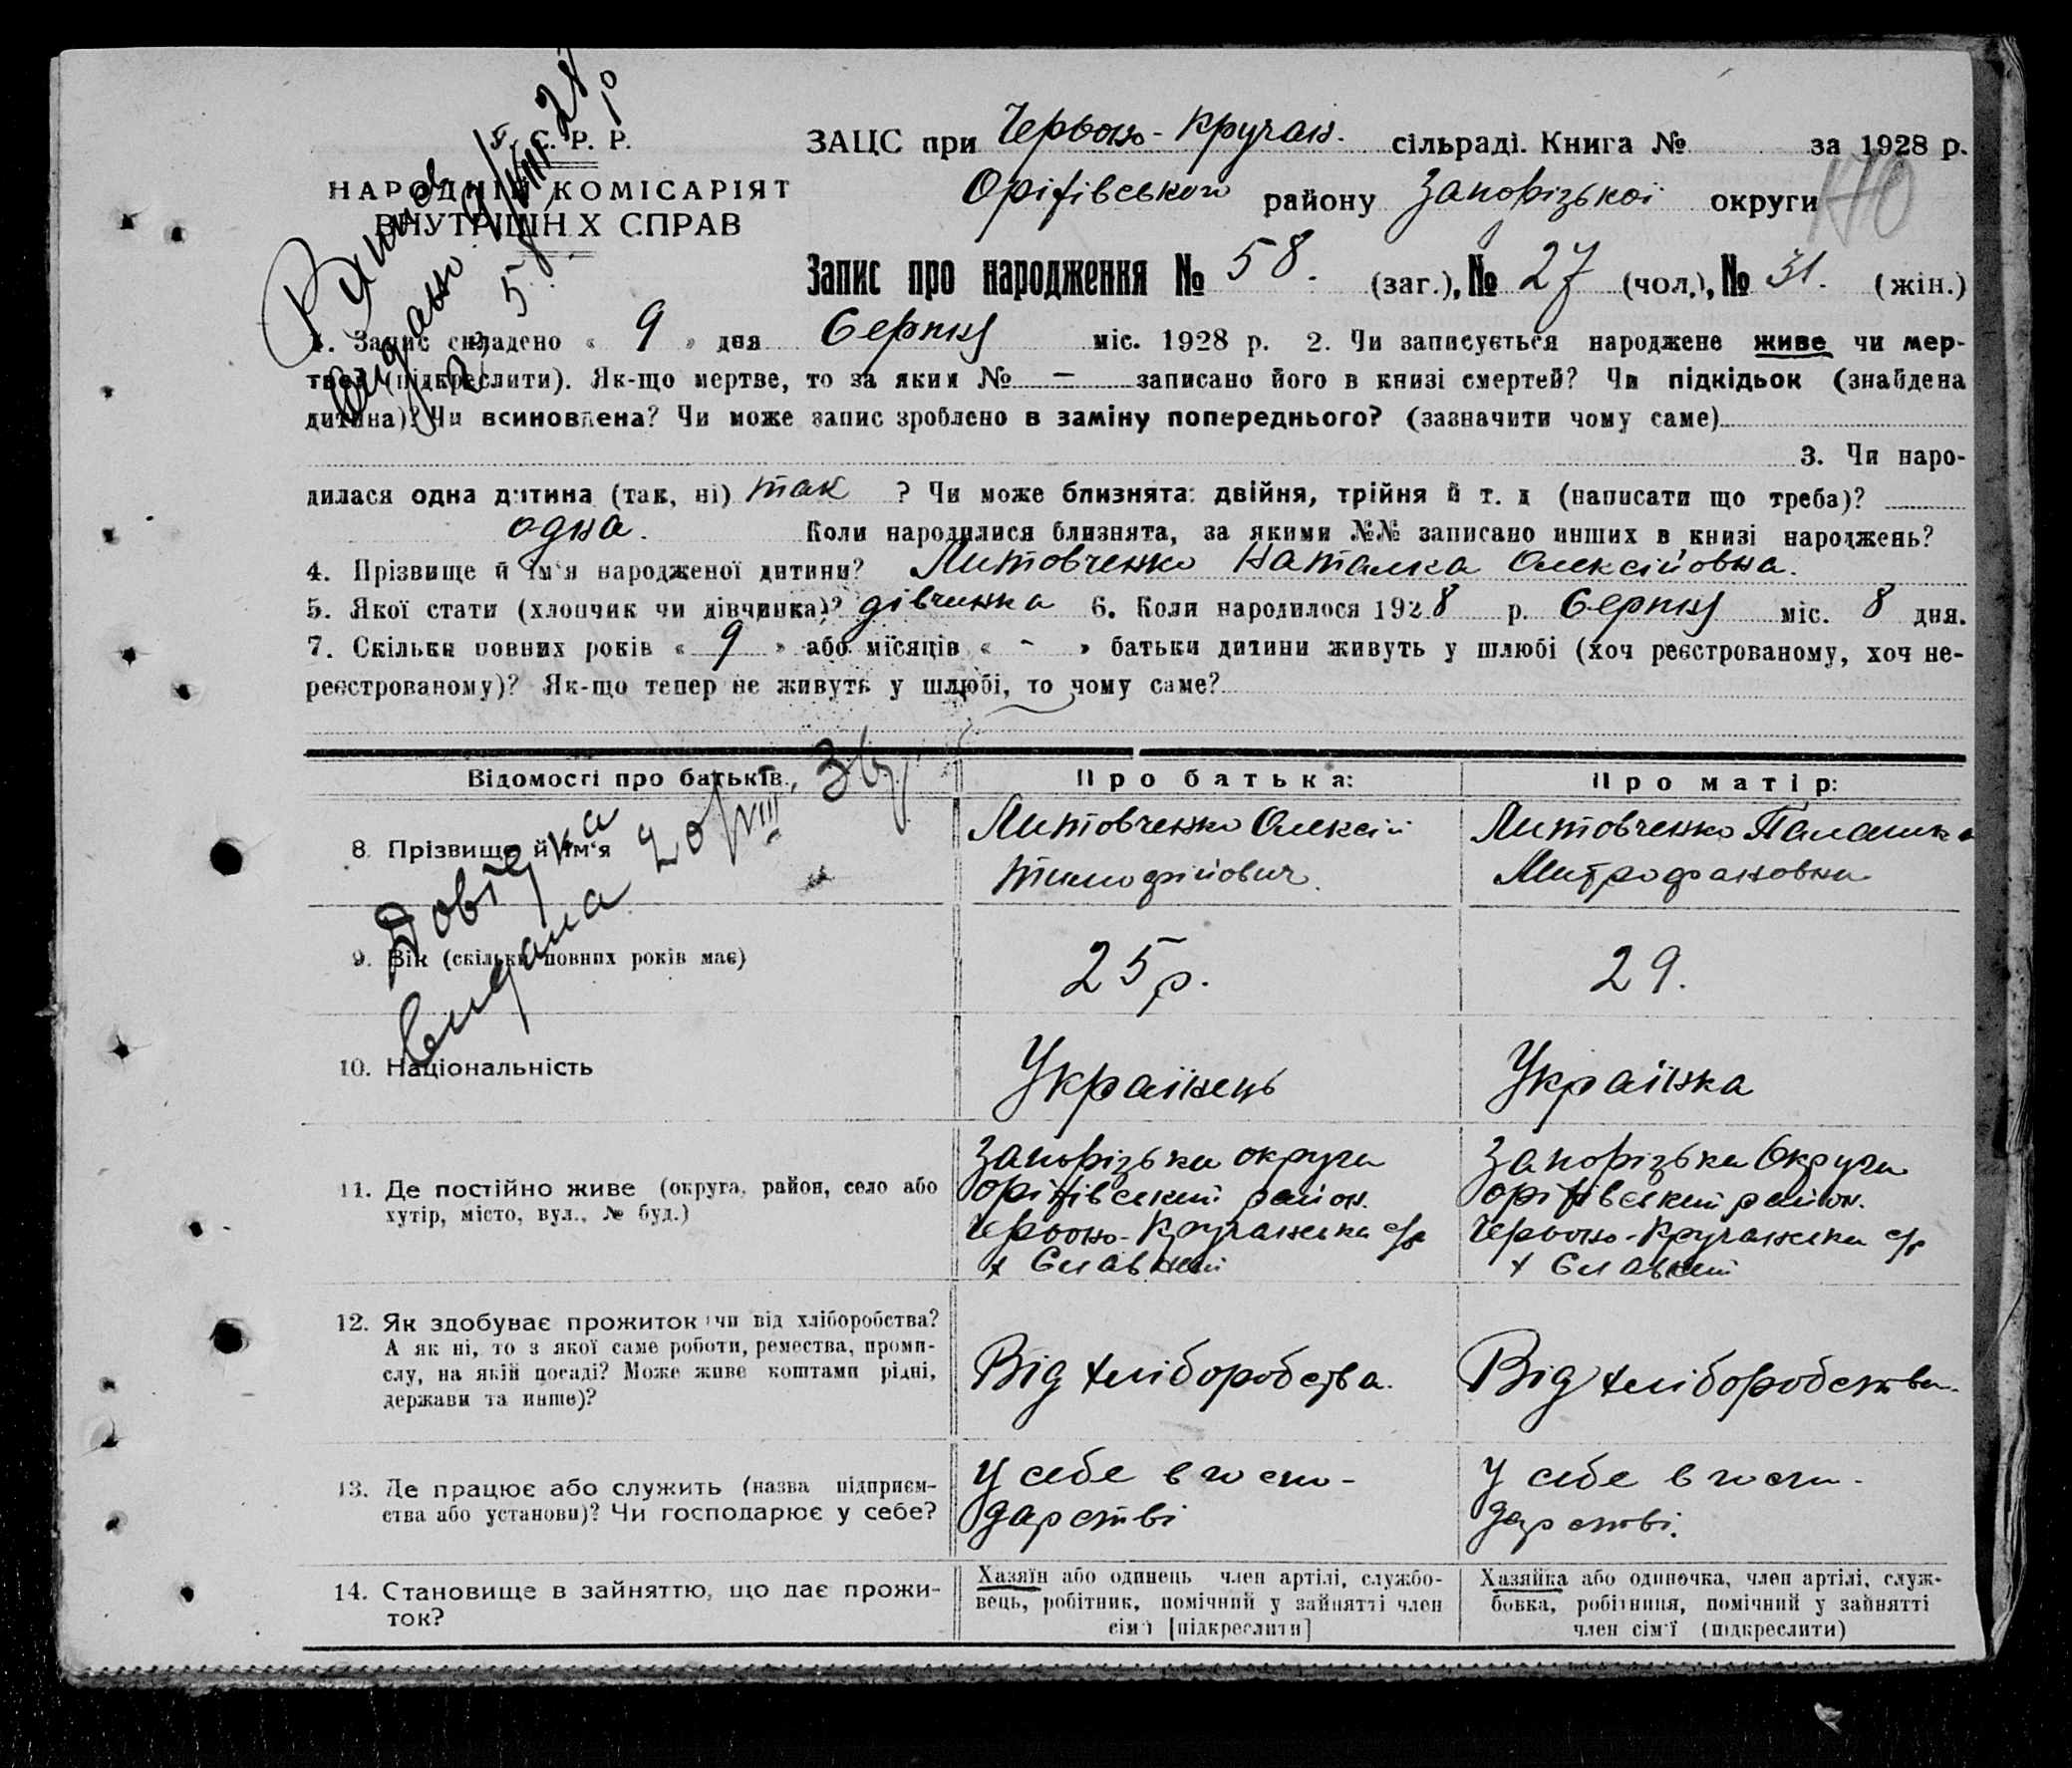 У. С. Р. Р.
НАРОДНІЙ КОМІСАРІЯТ
ВНУТРІШН Х СПРАВ
Витяг
видано 9/VIII 28 р
№ 58.
ЗАЦС при Червоно-Кручан. сільраді. Книга № за 1928 р.
Оріхівського району Запорізької округи
170
Запис про народження № 58. (заг.), № 27 (чол.), № 31. (жін.)
1. Запис складено « 9 » дня Серпня міс. 1928 р. 2. Чи записується народжене живе чи мер-
тве (підкреслити). Як-що мертве, то за яким № — записано його в книзі смертей? Чи підкідьок (знайдена
дитина)? Чи всиновлена? Чи може запис зроблено в заміну попереднього? (зазначити чому саме)
3. Чи наро-
дилася одна дитина (так, ні) так ? Чи може близнята: двійня, трійня й т. д (написати що треба)?
одна. Коли народилися близнята, за якими №№ записано инших в книзі народжень?
4. Прізвище й ім'я народженої дитини? Литовченко Наталка Олексійовна.
5. Якої стати (хлопчик чи дівчинка)? дівчинка 6. Коли народилося 1928 р. Серпня міс. 8 дня.
7. Скільки повних років « 9 » або місяців « - » батьки дитини живуть у шлюбі (хоч реєстрованому, хоч не-
реєстрованому)? Як-що тепер не живуть у шлюбі, то чому саме?
Відомості про батьків. Про батька: Про матір:
Довідка
видана 20/VIII 36 р.
8. Прізвище й ім'я Литовченко Олексій Тимофійович. Литовченко Палашка Митрофановна
9. Вік (скільки повних років має) 25 р. 29.
10. Національність Українець Українка
11. Де постійно живе (округа, район, село або хутір, місто, вул., № буд.)
Запорізька округа
Оріхівський район.
Червоно-Кручанська с/р
х Славний
Запорізька Округа
Оріхівський район.
Червоно-Кручанська с/р
х Славний
12. Як здобуває прожиток чи від хліборобства?
А як ні, то з якої саме роботи, ремества, проми-
слу, на якій посаді? Може живе коштами рідні,
держави та инше)?
Від хліборобства.
Від хліборобства.
13. Де працює або служить (назва підприєм-
ства або установи)? Чи господарює у себе?
У себе в госпо-
дарстві
У себе в госпо-
дарстві.
14. Становище в зайняттю, що дає прожи-
ток?
Хазяїн або одинець член артілі, службо-
вець, робітник, помічний у зайнятті член
сім'ї [підкреслити]
Хазяйка або одиночка, член артілі, служ-
бовка, робітниця, помічний у зайнятті
член сім'ї (підкреслити)